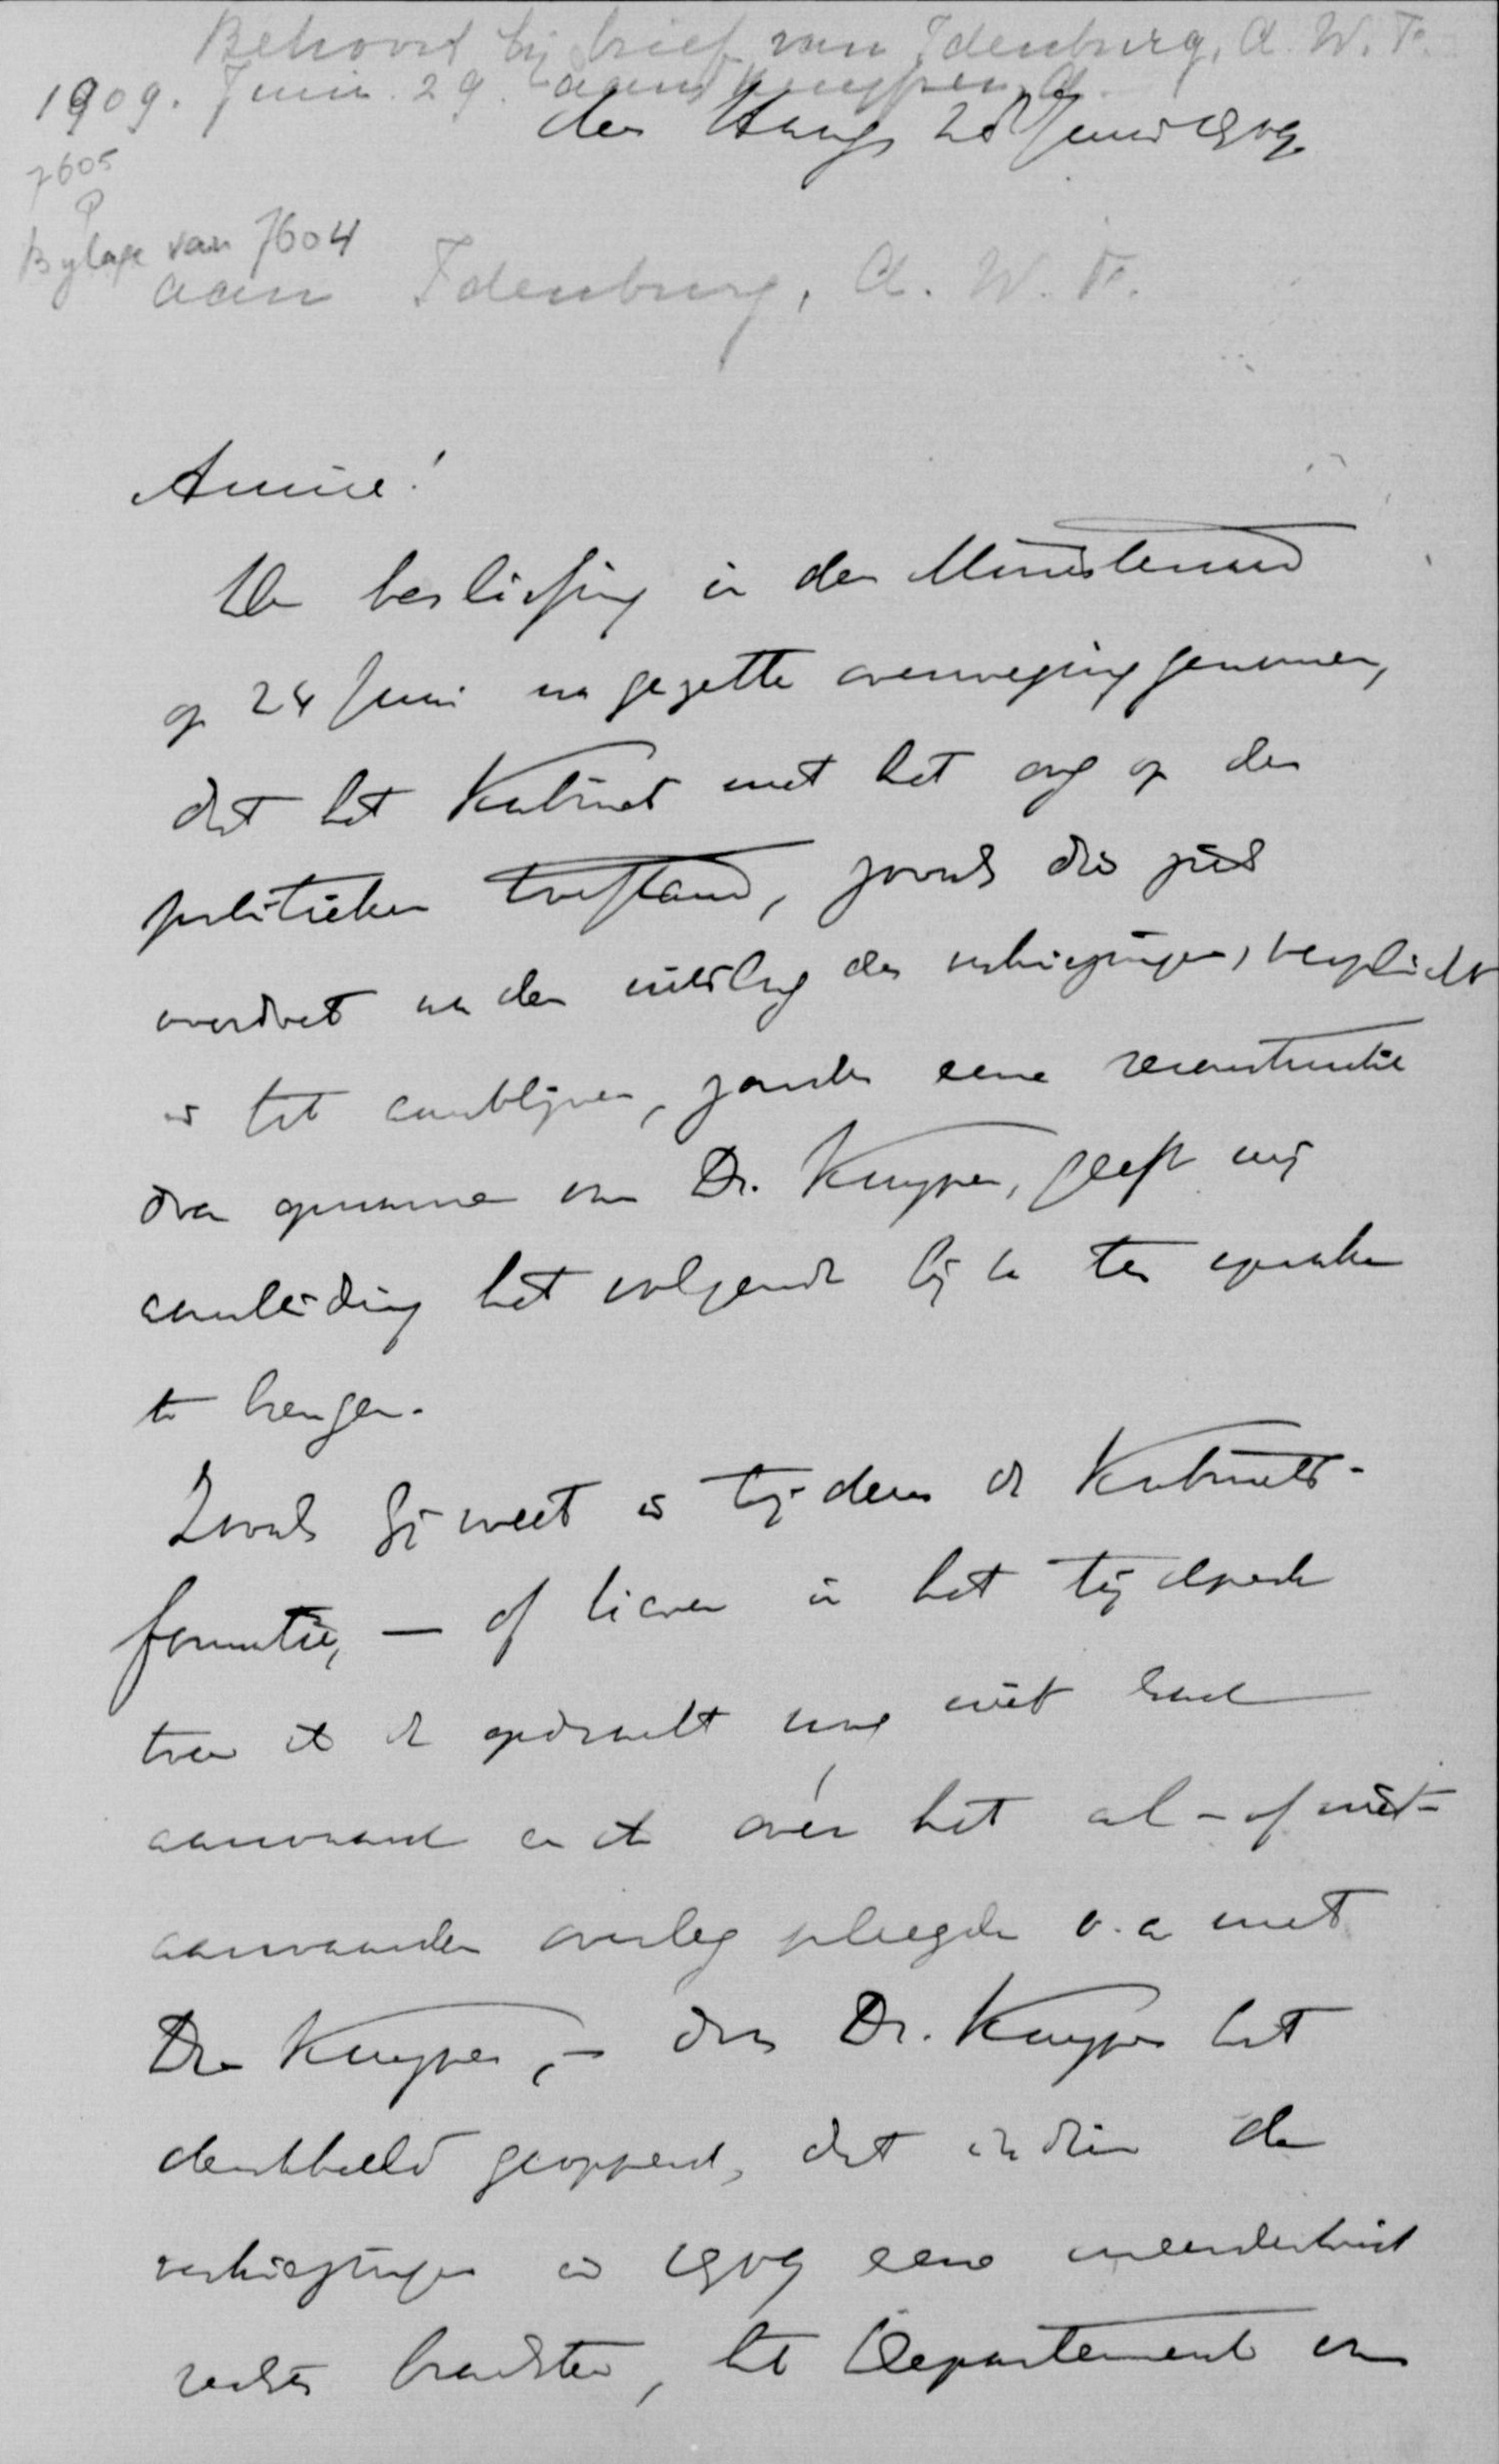 Behoort bij brief van Idenburg, A. W. F.
1909. Juni. 29. aan Kuyper, A.
den Haag 28 Juni 1909
7605
P
Bylage van 7604
aan Idenburg, A. W. F.
Amice!
De beslissing in den Ministerraad
op 24 Juni na gezette overweging genomen,
dat het Kabinet met het oog op den
politieken toestand, zooals die zich
voordoet na den uitslag der verkiezingen, verplicht
is tot aanblijven, zonder eene reconstructie
door opneming van Dr. Kuyper, geeft mij
aanleiding het volgende bij U ter sprake
te brengen.
Zooals gij weet is tijdens de Kabinets-
formatie, — of liever in het tijdperk
toen ik de opdracht nog niet had
aanvaard en ik over het al-of niet-
aanvaarden overleg pleegde o.a. met
Dr. Kuyper, — door Dr. Kuyper het
denkbeeld geopperd, dat indien de
verkiezingen in 1909 eene meerderheid
rechts brachten, het Departement van